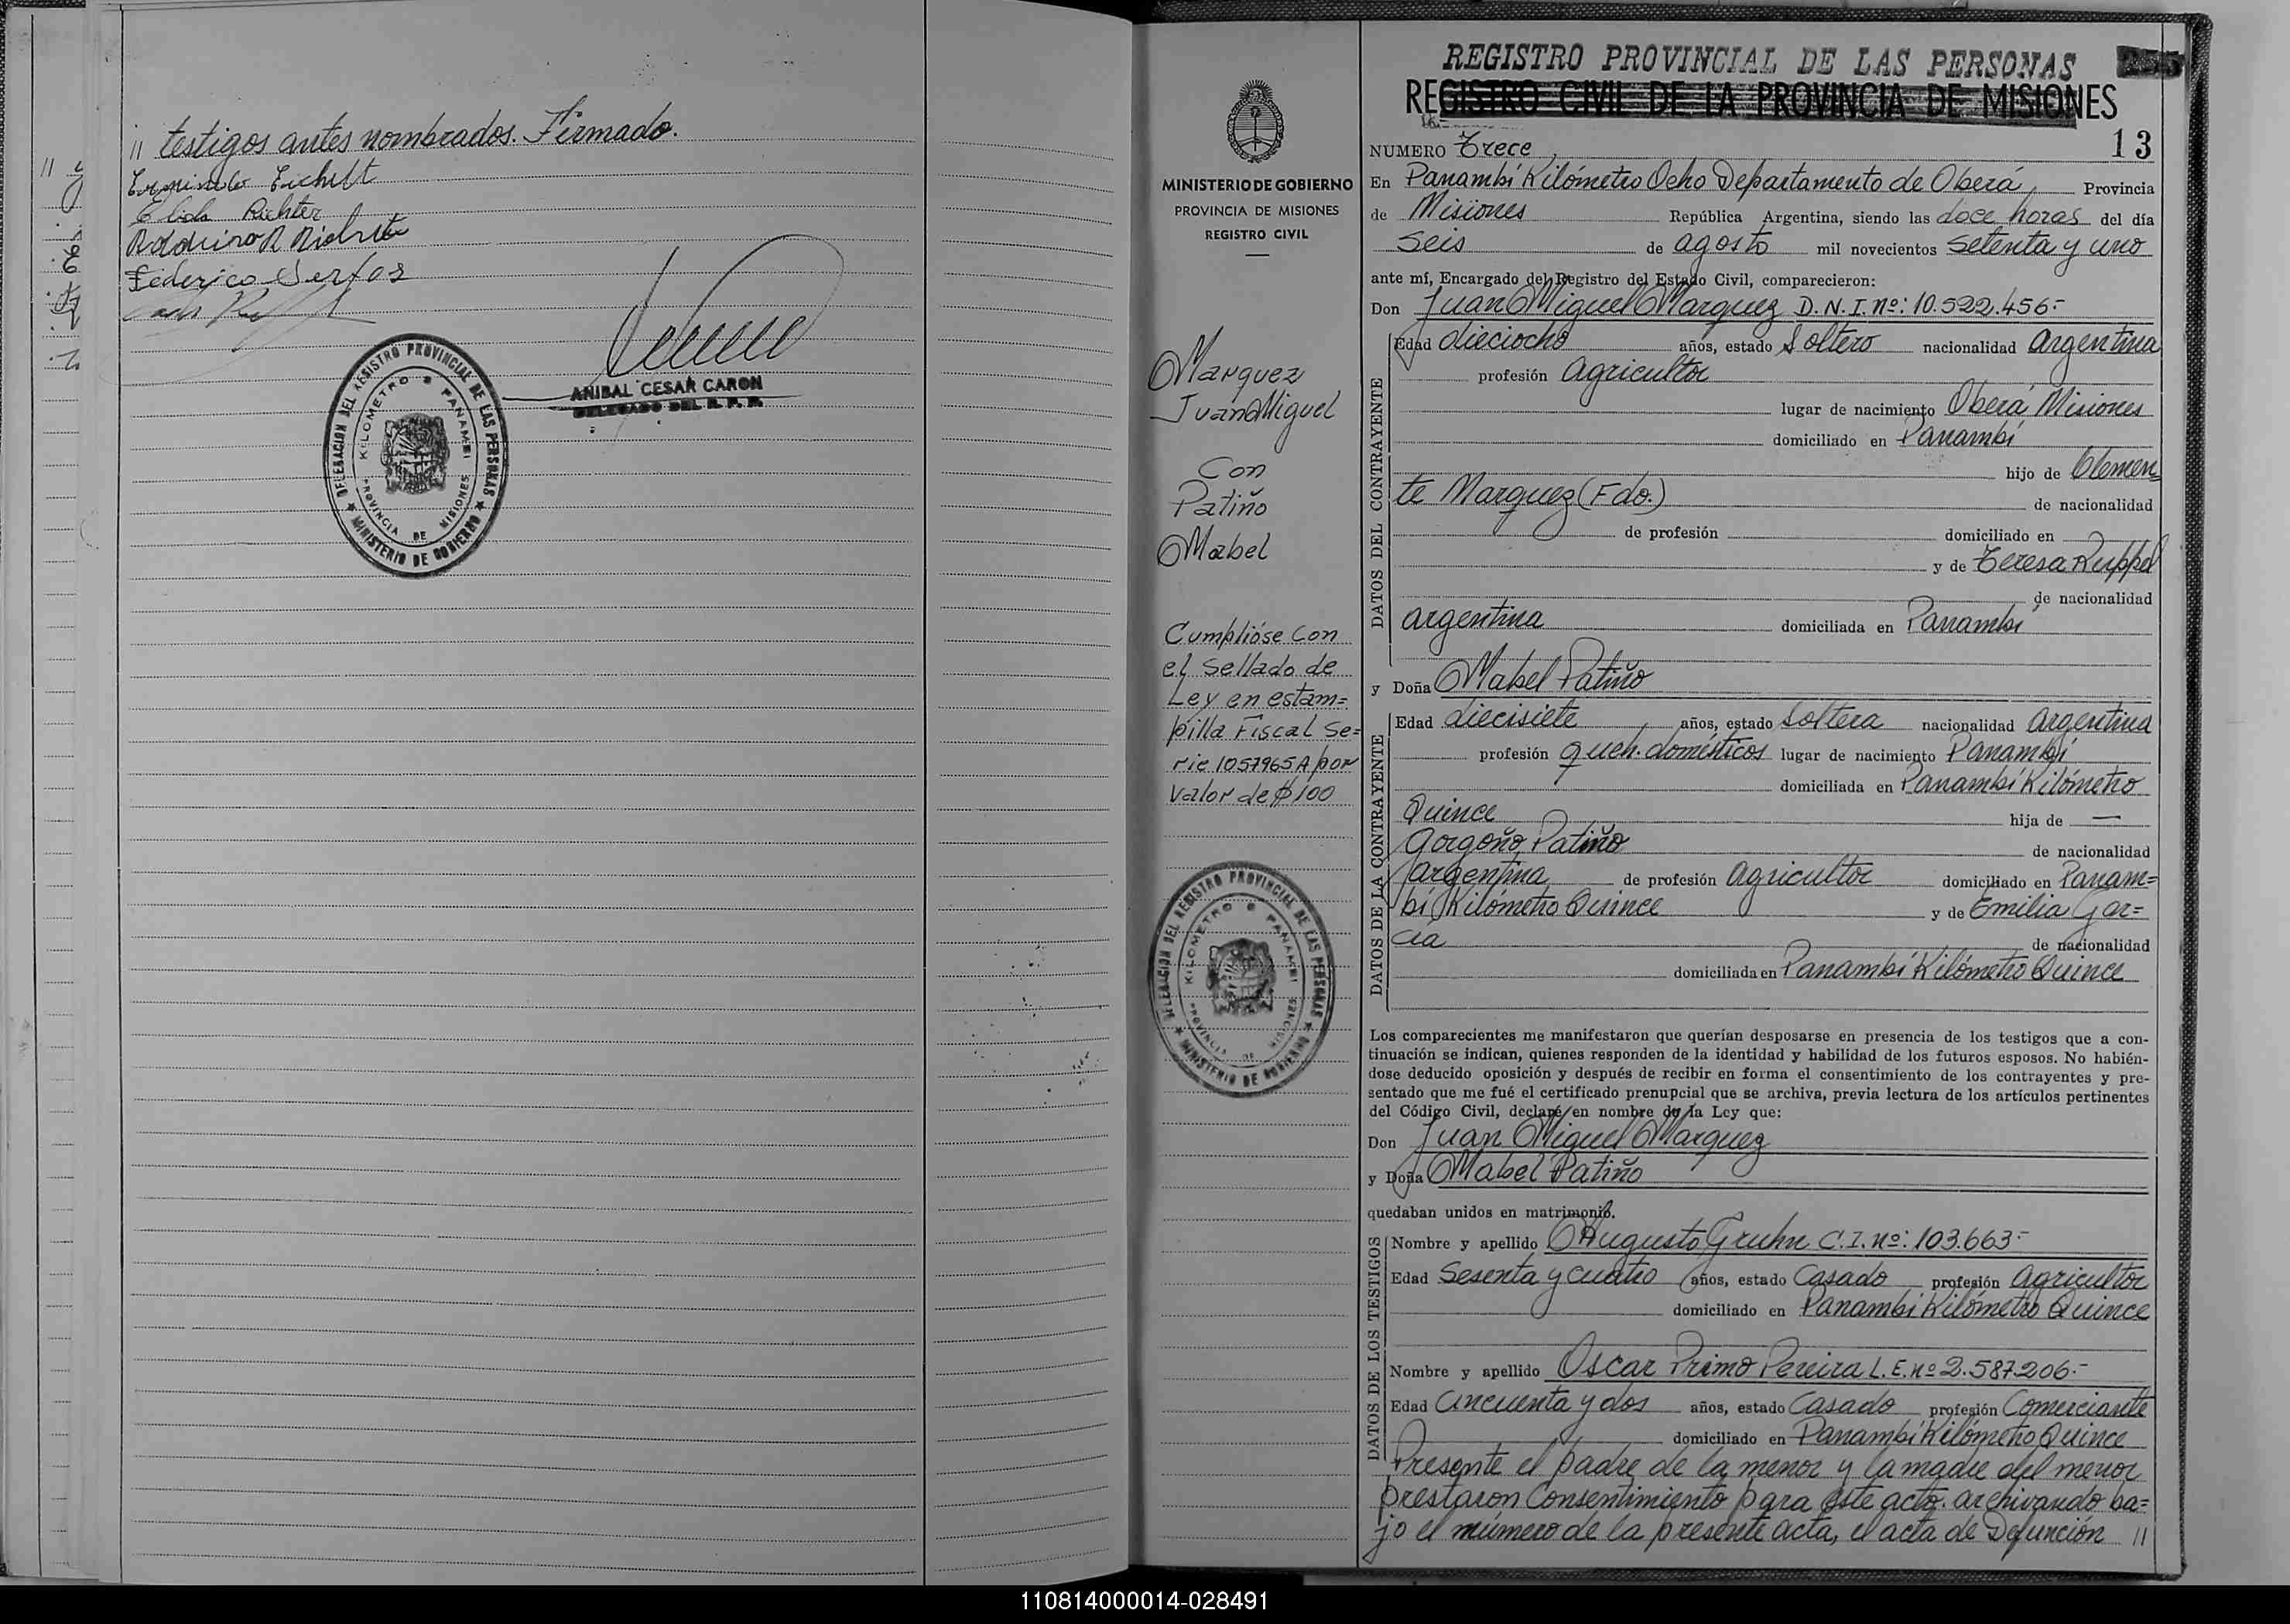 // testigos antes nombrados. Firmado.
Elida Richter
Federico
ANIBAL CESAR CARON
DELEGADO DEL R. P. P.
DELEGACION DEL REGISTRO PROVINCIAL DE LAS PERSONAS
KILOMETRO 8 PANAMBI
PROVINCIA DE MISIONES
MINISTERIO DE GOBIERNO
MINISTERIO DE GOBIERNO
PROVINCIA DE MISIONES
REGISTRO CIVIL
Marquez
Juan Miguel
Con
Patiño
Mabel
Cumplióse con
el sellado de
Ley en estam=
pilla Fiscal Se=
rie 1057965 A por
valor de $ 100
DELEGACION DEL REGISTRO PROVINCIAL DE LAS PERSONAS
KILOMETRO 8 PANAMBI
PROVINCIA DE MISIONES
MINISTERIO DE GOBIERNO
REGISTRO PROVINCIAL DE LAS PERSONAS
REGISTRO CIVIL DE LA PROVINCIA DE MISIONES
13
NUMERO Trece
En Panambí Kilómetro Ocho Departamento de Oberá, Provincia
de Misiones República Argentina, siendo las doce horas del día
Seis de agosto mil novecientos setenta y uno
ante mí, Encargado del Registro del Estado Civil, comparecieron:
Don Juan Miguel Marquez D.N.I. nº: 10.522.456=
DATOS DEL CONTRAYENTE
Edad dieciocho años, estado Soltero nacionalidad argentina
profesión agricultor
lugar de nacimiento Oberá Misiones
domiciliado en Panambí
hijo de Clemen=
te Marquez (Fdo.) de nacionalidad
de profesión domiciliado en
y de Teresa Ruppel
de nacionalidad
argentina domiciliada en Panambí
y Doña Mabel Patiño
DATOS DE LA CONTRAYENTE
Edad diecisiete años, estado Soltera nacionalidad argentina
profesión queh. domésticos lugar de nacimiento Panambí
domiciliada en Panambí Kilómetro
Quince hija de —
Gorgoño Patiño de nacionalidad
argentina de profesión agricultor domiciliado en Panam=
bí Kilómetro Quince y de Emilia Gar=
cia de nacionalidad
domiciliada en Panambí Kilómetro Quince
Los comparecientes me manifestaron que querían desposarse en presencia de los testigos que a con-
tinuación se indican, quienes responden de la identidad y habilidad de los futuros esposos. No habién-
dose deducido oposición y después de recibir en forma el consentimiento de los contrayentes y pre-
sentado que me fué el certificado prenupcial que se archiva, previa lectura de los artículos pertinentes
del Código Civil, declaré en nombre de la Ley que:
Don Juan Miguel Marquez
y Doña Mabel Patiño
quedaban unidos en matrimonio.
DATOS DE LOS TESTIGOS
Nombre y apellido Augusto Gruhn C.I. nº: 103.663=
Edad Sesenta y cuatro años, estado Casado profesión agricultor
domiciliado en Panambí Kilómetro Quince
Nombre y apellido Oscar Primo Pereira L.E. nº 2.587.206=
Edad Cincuenta y dos años, estado Casado profesión Comerciante
domiciliado en Panambí Kilómetro Quince
Presente el padre de la menor y la madre del menor
prestaron Consentimiento para este acto. archivando ba=
jo el número de la presente acta, el acta de Defunción //
110814000014-028491